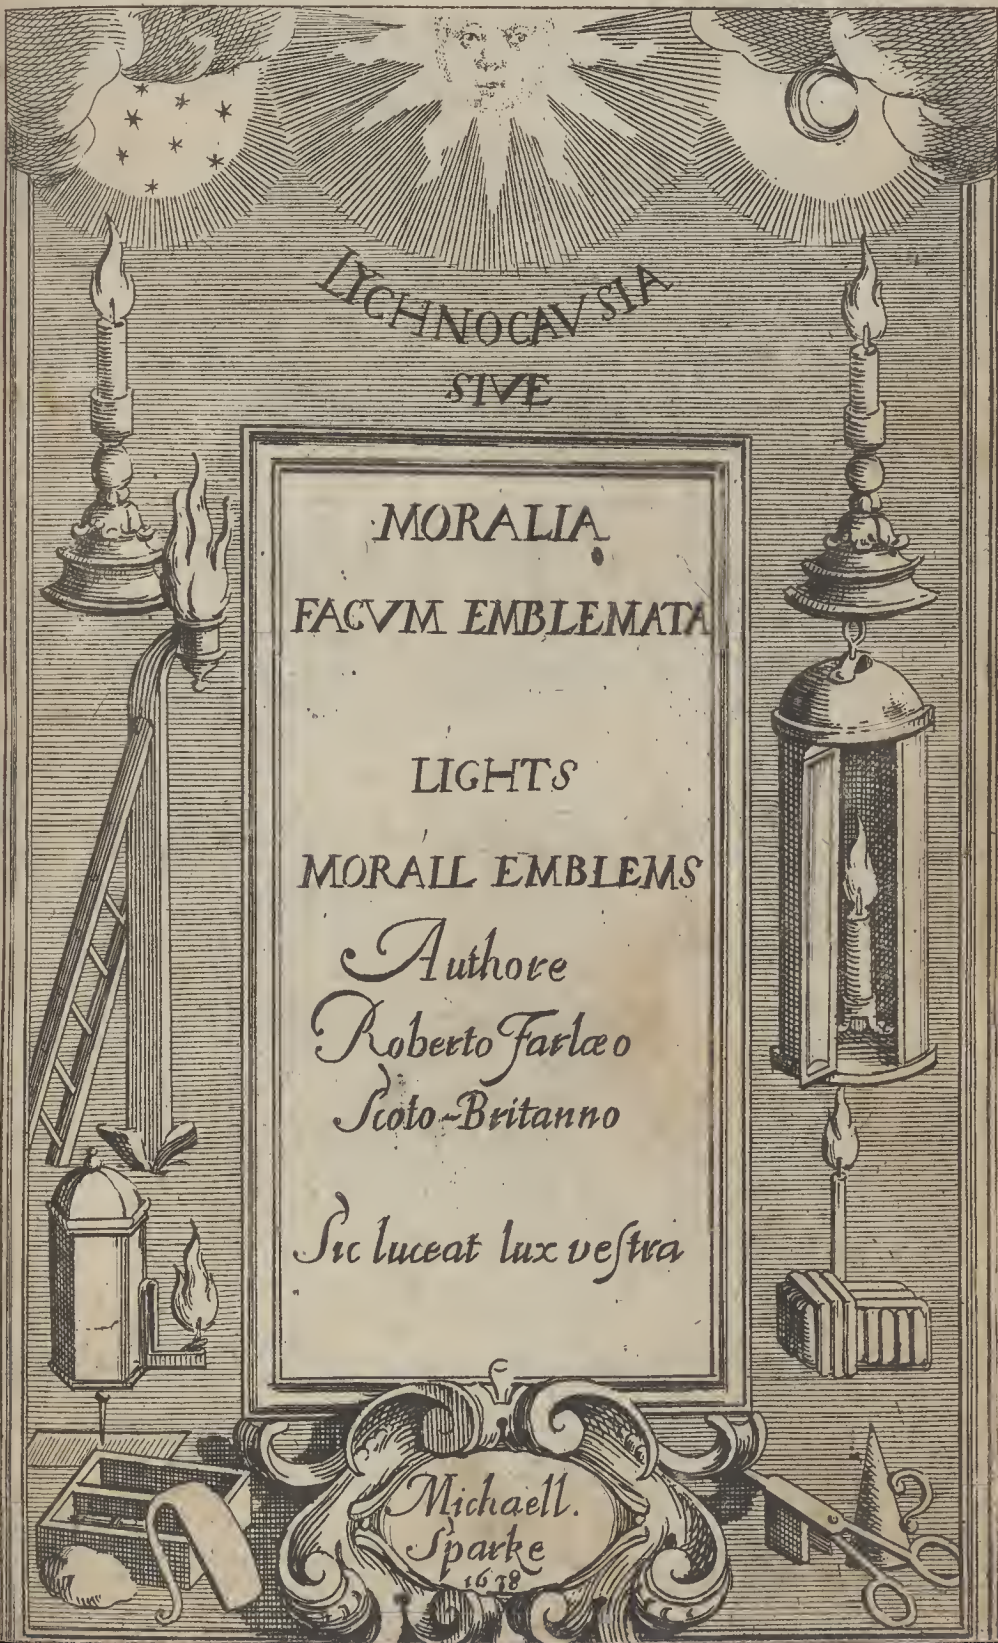 LYCHNOCAVSIA
SIVE
MORALIA
FACVM EMBLEMATA
LIGHTS
MORALL EMBLEMS
Authore
Roberto Farlæo
Scoto-Britanno
Sic luceat lux veſtra
Michaell.
Sparke
1638